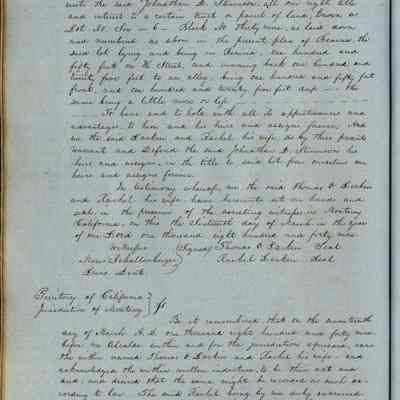 unto the said Johnathan D. Stevenson, all our right title
and interest to a certain tract or parcel of land, known as
Lot No. Six — 6 — Block No. Thirty nine, as laid down
and numbered as above in the present plan of Benicia, the
said lot lying and being in Benicia, one hundred and
fifty feet on H. Street, and running back one hundred and
twenty five feet to an alley, being one hundred and fifty feet
front, and one hundred and twenty five feet deep — the
same being a little more or less,
To have and to hold, with all its appurtenances and
advantages, to him and his heirs and assigns forever, And
we the said Larkin and Rachel his wife do by these presents
Warrant and Defend the said Johnathan D. Stevenson his
heirs and assigns, in the title to said lot from ourselves our
heirs and assigns forever.
In testimony whereof, we the said Thomas O. Larkin
and Rachel his wife, have hereunto set our hands and
seals, in the presence of the assisting witnesses in Monterey
California, on this the sixteenth day of March in the year
of our Lord one thousand eight hundred and forty nine.
Witnesses (Signed) Thomas O Larkin Seal
Moses Schallenberger Rachel Larkin Seal
Lewis Dent
Territory of California
Jurisdiction of Monterey } ss
Be it remembered that on the nineteenth
day of March A.D. one thousand eight hundred and forty nine
before me Alcalde within and for the jurisdiction aforesaid, came
the within named Thomas O Larkin and Rachel his wife and
acknowledged the within written indenture, to be their act and
deed, and desired that the same might be recorded as such ac-
cording to law. The said Rachel being by me duly examined